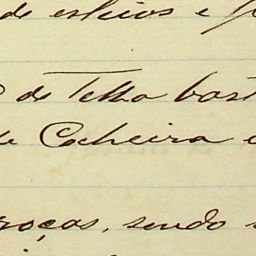 de esteios e
de Telha
de Cocheira e
roças, sendo